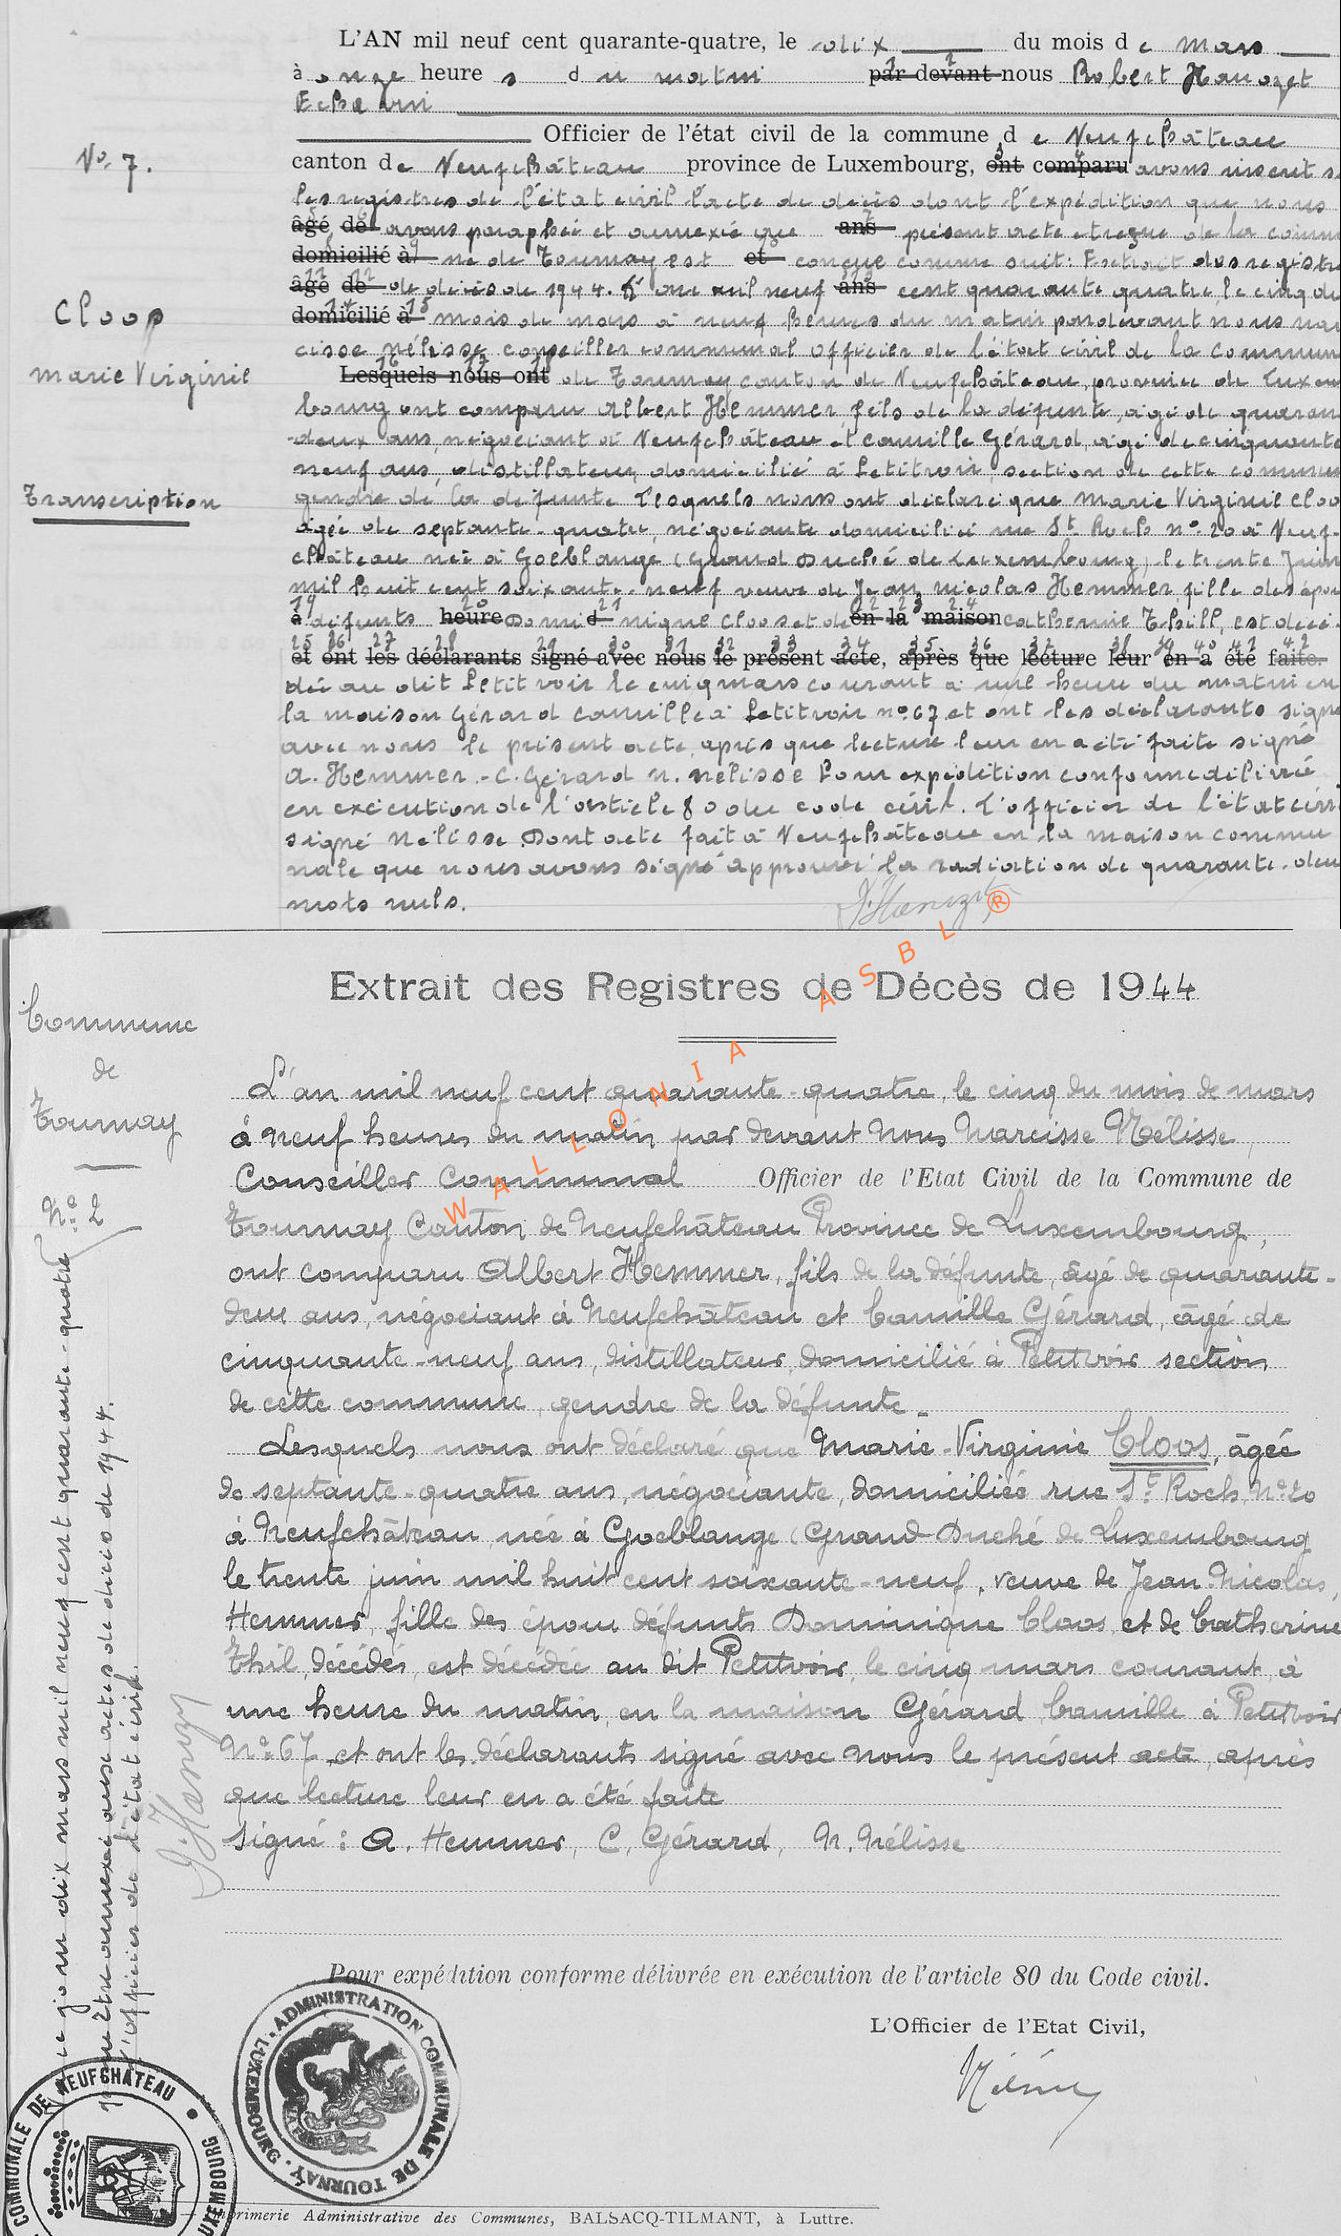 L'AN mil neuf cent quarante-quatre, le dix du mois de mars
à onze heures du matin par devant nous Robert Hanozet
Echevin
Officier de l'état civil de la commune de Neufchâteau
No 7.
canton de Neufchâteau province de Luxembourg, ont comparu avons inscrit s
les registres de l'état civil l'acte de décès dont l'expédition que nous
âgé de avons paraphée et annexée que ans présent acte et reçue de la comm
domicilié à ne de Tournay est et conçue comme suit: Extrait des registre
âgé de de décès de 1944. L'an mil neuf ans cent quarante quatre, le cinq du
Cloos
domicilié à mois de mars à neuf heures du matin pardevant nous nar
cisse Nélisse conseiller communal officier de l'état civil de la commun
Marie Virginie
Lesquels nous ont de Tournay canton de Neufchâteau, province de Luxem
bourg ont comparu Albert Hemmer fils de la défunte, âgé de quaran
deux ans, négociant à Neufchâteau et Camille Gérard, âgé de cinquante
neuf ans, distillateur, domicilié à Petitvoir, section de cette commune
Transcription
gendre de la défunte Lesquels nous ont déclaré que Marie Virginie Cloo
âgée de septante-quatre, négociante domiciliée rue St Roch no 20 à Neuf-
château née à Goeblange (Grand Duché de Luxembourg) le trente Juin
mil huit cent soixante-neuf veuve de Jean Nicolas Hemmer fille des épou
à défunts heure Domi d nique Cloos et de en la maison Catherine Thill, est décé-
et ont les déclarants signé avec nous le présent acte, après que lecture leur en a été faite.
dée au dit Petitvoir le cinq mars courant à une heure du matin en
la maison Gérard Camille à Petitvoir no 67 et ont les déclarants signé
avec nous le présent acte, après que lecture leur en a été faite signé
A. Hemmer. C. Gérard N. Nélisse Pour expédition conforme délivrée
en exécution de l'article 80 du code civil. L'officier de l'état civi
signé Nélisse Dont acte fait à Neufchâteau en la maison commu
nale que nous avons signé approuvé la radiation de quarante-deu
mots nuls.
R. Hanozet
WALLONIA ASBL ®
Extrait des Registres de Décès de 1944
Commune
de
Tournay
No 2
L'an mil neuf cent quarante-quatre, le cinq du mois de mars
à neuf heures du matin, par devant Nous Narcisse Nélisse,
Conseiller Communal Officier de l'Etat Civil de la Commune de
Tournay Canton de Neufchâteau Province de Luxembourg,
ont comparu Albert Hemmer, fils de la défunte, âgé de quarante-
deux ans, négociant à Neufchâteau et Camille Gérard, âgé de
cinquante-neuf ans, distillateur, domicilié à Petitvoir section
de cette commune, gendre de la défunte.
Lesquels nous ont déclaré que Marie-Virginie Cloos, âgée
de septante-quatre ans, négociante, domiciliée rue St Roch, No 20
à Neufchâteau née à Goeblange (Grand-Duché de Luxembourg
le trente juin mil huit cent soixante-neuf, veuve de Jean-Nicolas
Hemmer, fille des époux défunts Dominique Cloos et de Catherine
Thil, décédés, est décédée au dit Petitvoir, le cinq mars courant, à
une heure du matin, en la maison Gérard Camille à Petitvoir
No 67, et ont les déclarants signé avec nous le présent acte, après
que lecture leur en a été faite
Signé: A. Hemmer, C. Gérard, N. Nélisse
ce jour dix mars mil neuf cent quarante-quatre
être annexé aux actes de décès de 1944.
L'officier de l'état civil.
R. Hanozet
Pour expédition conforme délivrée en exécution de l'article 80 du Code civil.
L'Officier de l'Etat Civil,
Nélisse
ADMINISTRATION COMMUNALE DE TOURNAY. LUXEMBOURG.
COMMUNALE DE NEUFCHÂTEAU • UXEMBOURG
primerie Administrative des Communes, BALSACQ-TILMANT, à Luttre.